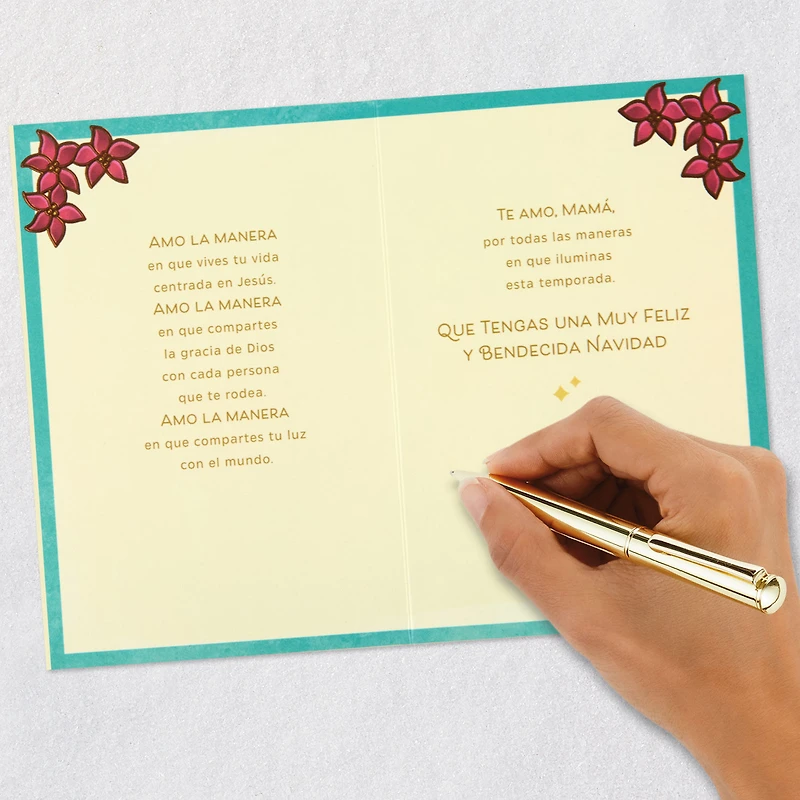 AMO LA MANERA
en que vives tu vida
centrada en Jesús.
AMO LA MANERA
en que compartes
la gracia de Dios
con cada persona
que te rodea.
AMO LA MANERA
en que compartes tu luz
con el mundo.
TE AMO, MAMÁ,
por todas las maneras
en que iluminas
esta temporada.
QUE TENGAS UNA MUY FELIZ
Y BENDECIDA NAVIDAD